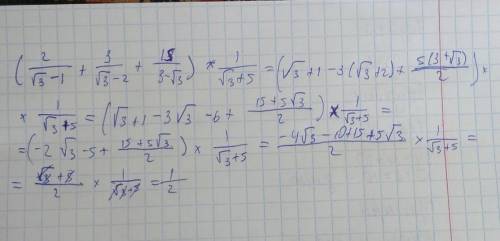 (2/(√3-1) + 3/(√3-2) + 15/(3-√3)) × 1/(√3+5) = (√3+1-3(√3+2)+ 5(3+√3)/2) ×
× 1/(√3+5) = (√3+1-3√3-6+ (15+5√3)/2) × 1/(√3+5) =
= (-2√3-5+ (15+5√3)/2) × 1/(√3+5) = (-4√3-10+15+5√3)/2 × 1/(√3+5) =
= (√3+5)/2 × 1/(√3+5) = 1/2